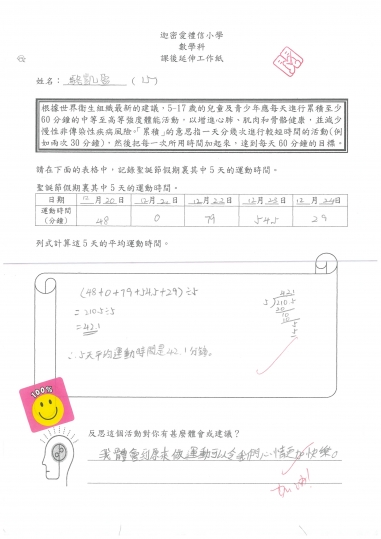 迦密愛禮信小學
數學科
課後延伸工作紙
姓名: (15)
根據世界衞生組織最新的建議,5-17歲的兒童及青少年應每天進行累積至少
60分鐘的中等至高等強度體能活動,以增進心肺、肌肉和骨骼健康,並減少
慢性非傳染性疾病風險。「累積」的意思指一天分幾次進行較短時間的活動(例
如兩次30分鐘),然後把每一次所用時間加起來,達到每天60分鐘的目標。
請在下面的表格中,記錄聖誕節假期裏其中5天的運動時間。
聖誕節假期裏其中5天的運動時間。
日期 12月20日 12月21日 12月22日 12月23日 12月24日
運動時間(分鐘) 48 0 79 54.5 29
列式計算這5天的平均運動時間。
(48+0+79+54.5+29)÷5
=210.5÷5
=42.1
∴5天平均運動時間是42.1分鐘。
42.1
5 210.5
20
10
10
5
5
100%
反思這個活動對你有甚麼體會或建議?
我體會到原來做運動可以令我們心情更加快樂。